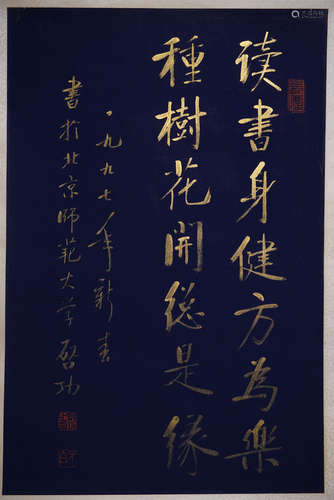 读書身健方為樂
種樹花開總是緣
一九九七年新春
書於北京師範大学啓功